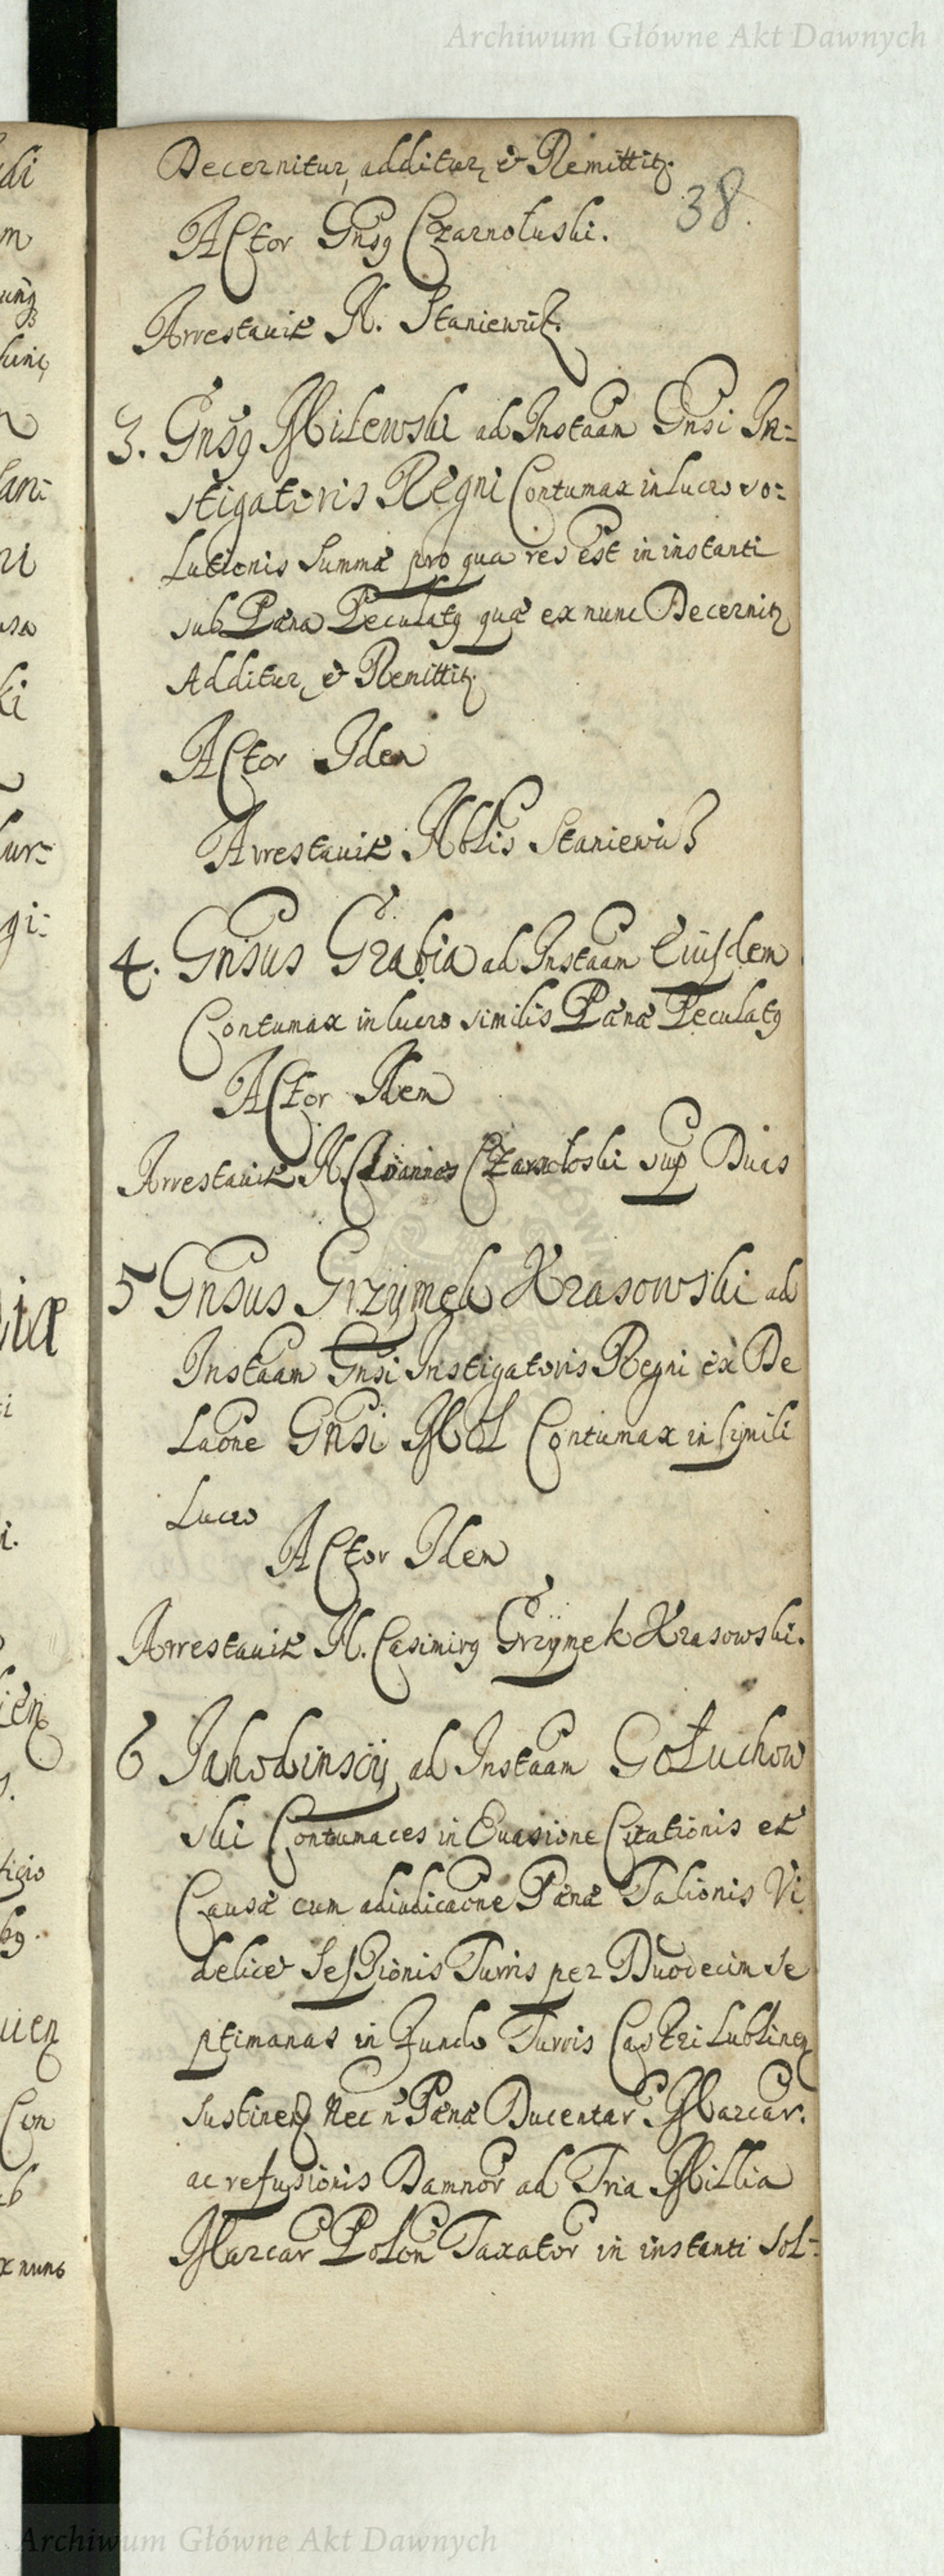 Archiwum Główne Akt Dawnych
Decernitur, additur, & Remittitz.
38.
Actor Gnsg Czarnołuski.
Arrestavit N. Staniewicz.
3. Gnsg Milewski ad Instaam Gnsi In=
stigatoris Regni Contumax in lucro so=
lutionis Summæ pro qua res est in instanti
sub Pæna Peculatg quæ ex nunc Decernitz
Additur, & Remittitz.
Actor Idem
Arrestavit Nblis Staniewicz
4. Gnsus Grabia ad Instaam Eiusdem
Contumax in lucro similis Pænæ Peculatg
Actor Idem
Arrestavit N. Ioannes sup Duas
5 Gnsus Grzymek Krasowski ad
Instaam Gnsi Instigatoris Regni ex De
laone Gnsi Contumax in simili
Lucro
Actor Idem
Arrestavit N. Casimirg Grzymek Krasowski.
6 ad Instaam Gołuchow
ski Contumaces in Euasione Citationis et
Causæ cum adiudicaone Pænæ Talionis Vi
delicet Sessionis Turris per Duodecim Se
ptimanas in Fundo Turris Castri Lublinez
Sustinend Nec n Pænæ Ducentar Marcar.
ac refusionis Damnor ad Tria Millia
Marcar Polon Taxator in instanti Sol=
Archiwum Główne Akt Dawnych